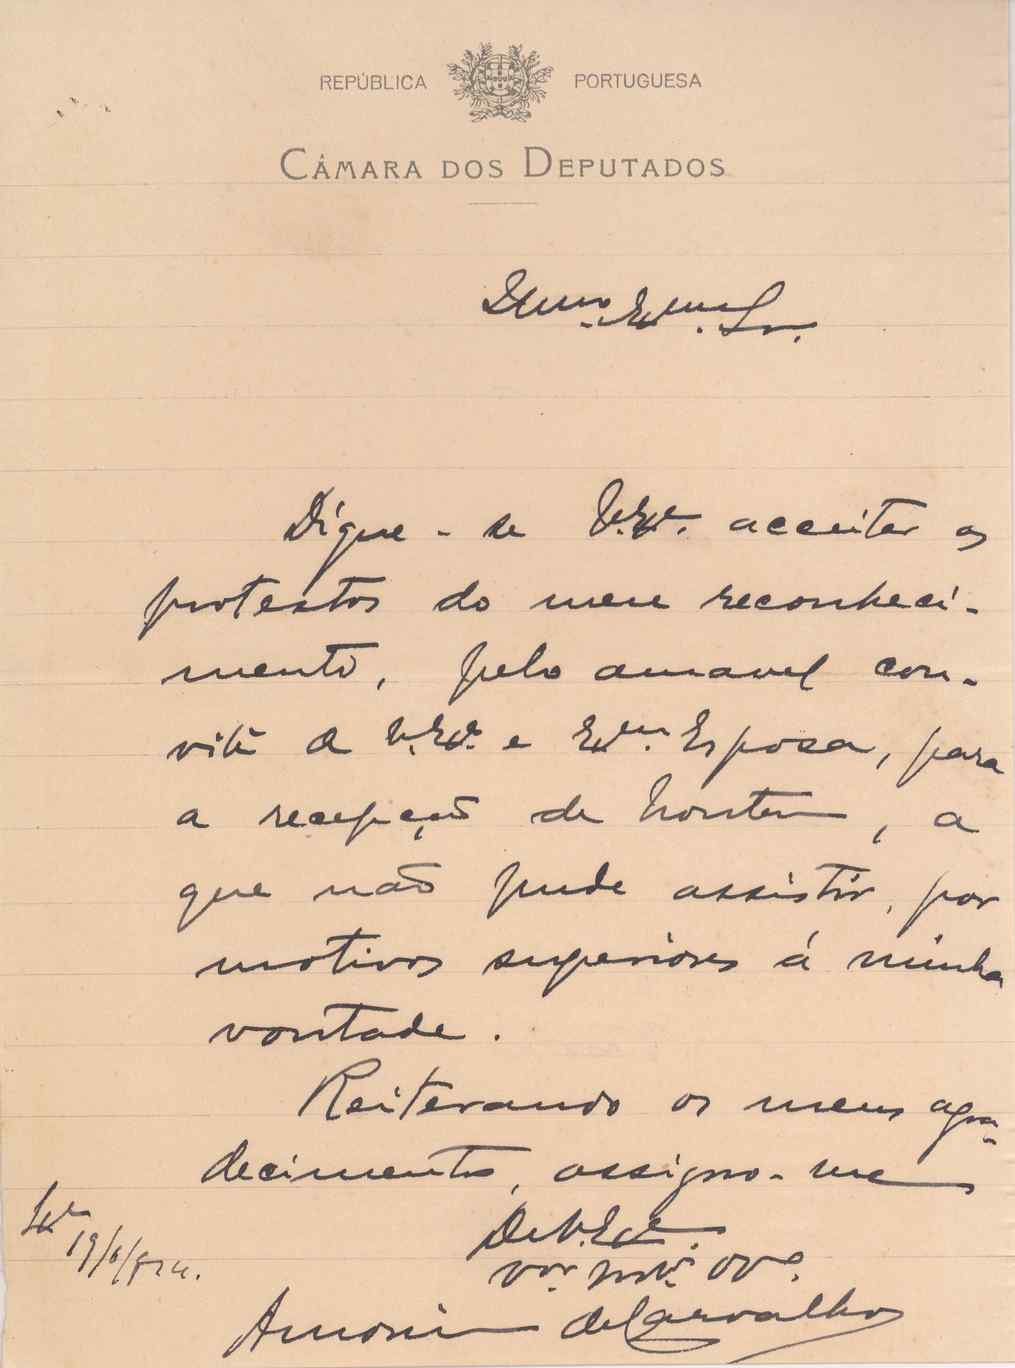 REPÚBLICA PORTUGUESA
CÂMARA DOS DEPUTADOS
Illmo. Exmo. Sr.
Digne-se V. Exª. acceitar os
protestos do meu reconheci-
mento, pelo amavel con-
vite de V. Exª. e Exma. Esposa, para
a recepção de hontem, a
que não pude assistir, por
motivos superiores á minha
vontade.
Reiterando os meus agra-
decimentos, assigno-me
De V. Exª.
Lxª 19/6/924.
Amorim de Carvalho